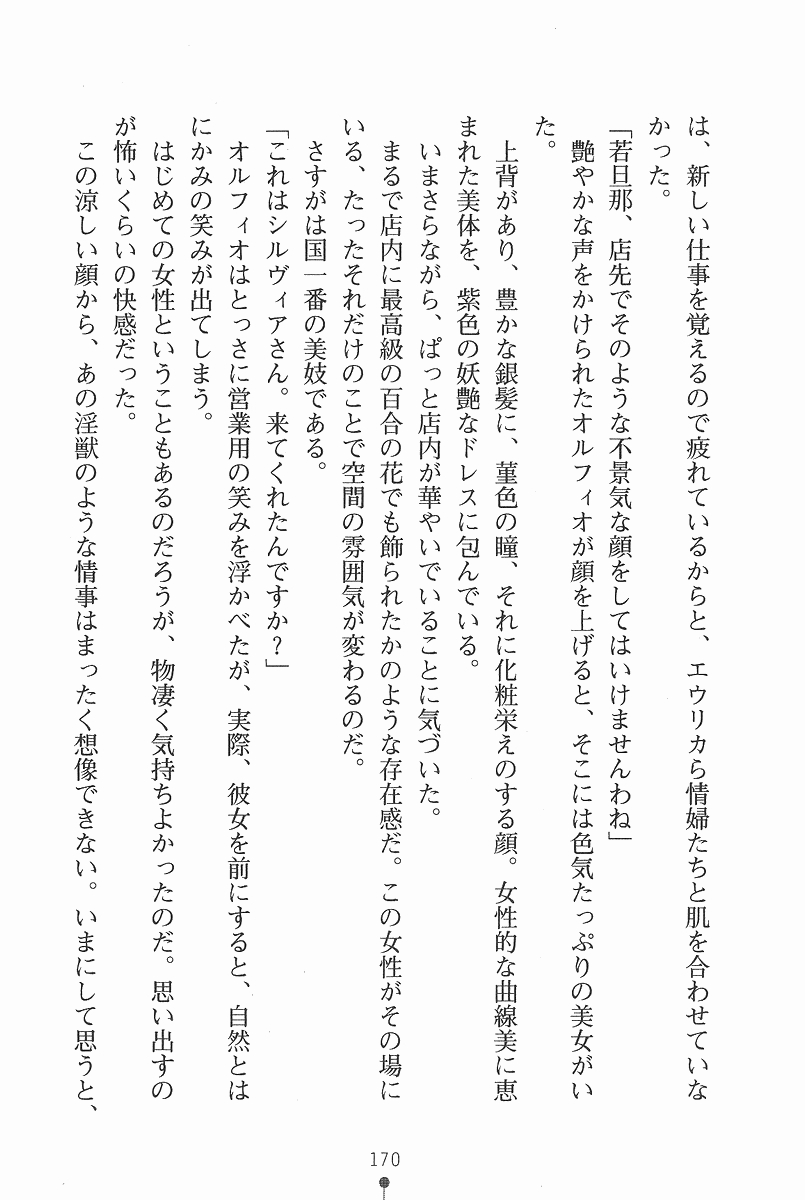 は、新しい仕事を覚えるので疲れているからと、エウリカら情婦たちと肌を合わせていな
かった。
「若旦那、店先でそのような不景気な顔をしてはいけませんわね」
艶やかな声をかけられたオルフィオが顔を上げると、そこには色気たっぷりの美女がい
た。
上背があり、豊かな銀髪に、菫色の瞳、それに化粧栄えのする顔。女性的な曲線美に恵
まれた美体を、紫色の妖艶なドレスに包んでいる。
いまさらながら、ぱっと店内が華やいでいることに気づいた。
まるで店内に最高級の百合の花でも飾られたかのような存在感だ。この女性がその場に
いる、たったそれだけのことで空間の雰囲気が変わるのだ。
さすがは国一番の美妓である。
「これはシルヴィアさん。来てくれたんですか？」
オルフィオはとっさに営業用の笑みを浮かべたが、実際、彼女を前にすると、自然とは
にかみの笑みが出てしまう。
はじめての女性ということもあるのだろうが、物凄く気持ちよかったのだ。思い出すの
が怖いくらいの快感だった。
この涼しい顔から、あの淫獣のような情事はまったく想像できない。いまにして思うと、
170